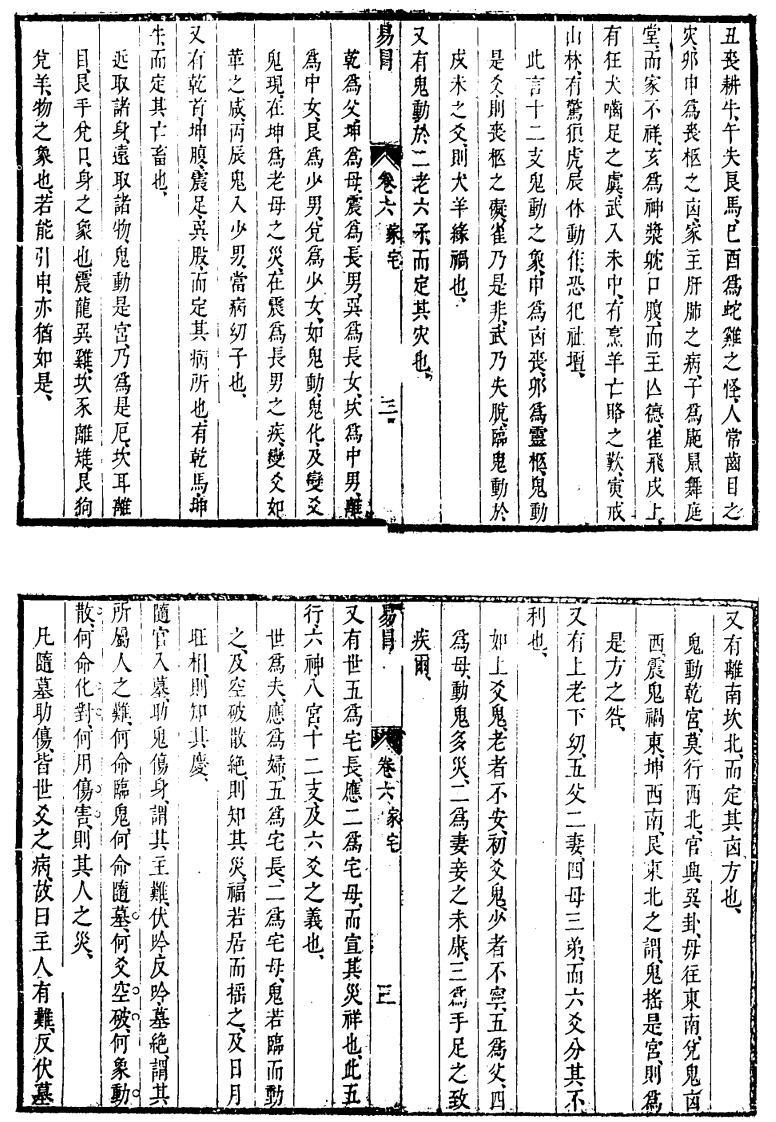 丑喪耕牛、午失良馬、巳酉爲蛇雞之怪、人常齒目之
灾、卯申爲喪柩之凶、家主肝肺之病、子爲鼠舞庭
堂、而家不祥、亥爲神漿就口腹、而主凶德、雀飛戌上、
有狂犬嚙足之虞、武入未中、有烹羊亡賂之歎、寅戒
山林、有驚狼虎、辰休動作、恐犯社壇、
此言十二支鬼動之象、申爲凶喪、卯爲靈柩、鬼動
是爻、則喪柩之礙、雀乃是非、武乃失脫、臨鬼動於
戌未之爻、則犬羊緣禍也、
又有鬼動於二老六子、而定其灾也、
易冐 卷六 家宅 三
乾爲父、坤爲母、震爲長男、巽爲長女、坎爲中男、離
爲中女、艮爲少男、兌爲少女、如鬼動、鬼化、及變爻
鬼現、在坤爲老母之災、在震爲長男之疾、變爻如
革之咸、丙辰鬼入少男、當病幼子也、
又有乾首、坤腹、震足、巽股、而定其病所也、有乾馬、坤
牛、而定其亡畜也、
近取諸身、遠取諸物、鬼動是宮、乃爲是厄、坎耳離
目、艮手兌口、身之象也、震龍巽雞、坎豕離雉、艮狗
兌羊、物之象也、若能引申、亦猶如是、
又有離南坎北、而定其凶方也、
鬼動乾宮、莫行西北、官興巽卦、毋往東南、兌鬼凶
西、震鬼禍東、坤西南、艮東北之謂、鬼搖是宮、則爲
是方之咎、
又有上老下幼、五父二妻、四母三弟、而六爻分其不
利也、
如上爻鬼、老者不安、初爻鬼、少者不寧、五爲父、四
爲母、動鬼多災、二爲妻妾之未康、三爲手足之致
疾爾、
易冐 卷六 家宅 三
又有世五爲宅長、應二爲宅母、而宣其災祥也、此五
行六神八宮、十二支及六爻之義也、
世爲夫、應爲婦、五爲宅長、二爲宅母、鬼若臨而動
之、及空破散絕、則知其災、福若居而搖之、及日月
旺相、則知其慶、
隨官入墓、助鬼傷身、謂其主難、伏吟反吟、墓絕、謂其
所屬人之難、何命臨鬼、何命隨墓、何爻空破、何象動
散、何命化對、何用傷害、則其人之災、
凡隨墓助傷、皆世爻之病、故曰主人有難、反伏墓